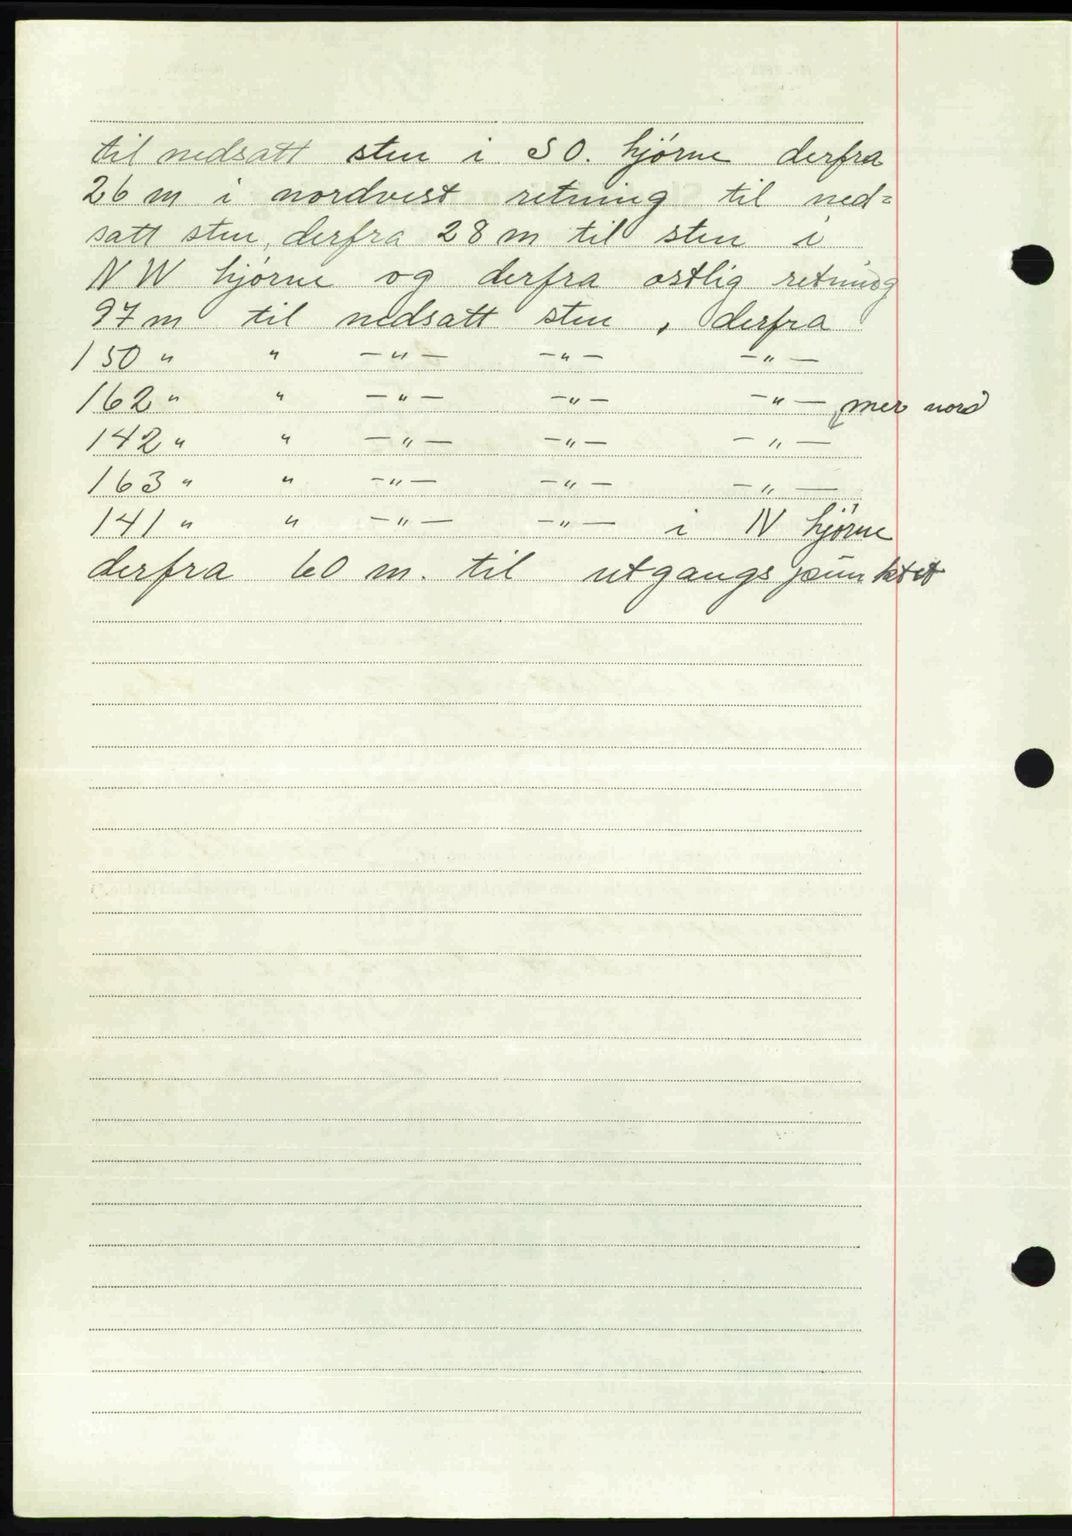 til nedsatt sten i SO. hjørne derfra
26 m i nordvest retning til ned=
satt sten, derfra 28 m til sten i
NW hjørne og derfra østlig retning
97 m til nedsatt sten, derfra
150 " " —"— —"— —"—
162 " " —"— —"— —"— mer nord
142 " " —"— —"— —"—
163 " " —"— —"— —"—
141 " " —"— —"— i N hjørne
derfra 60 m. til utgangspunktet